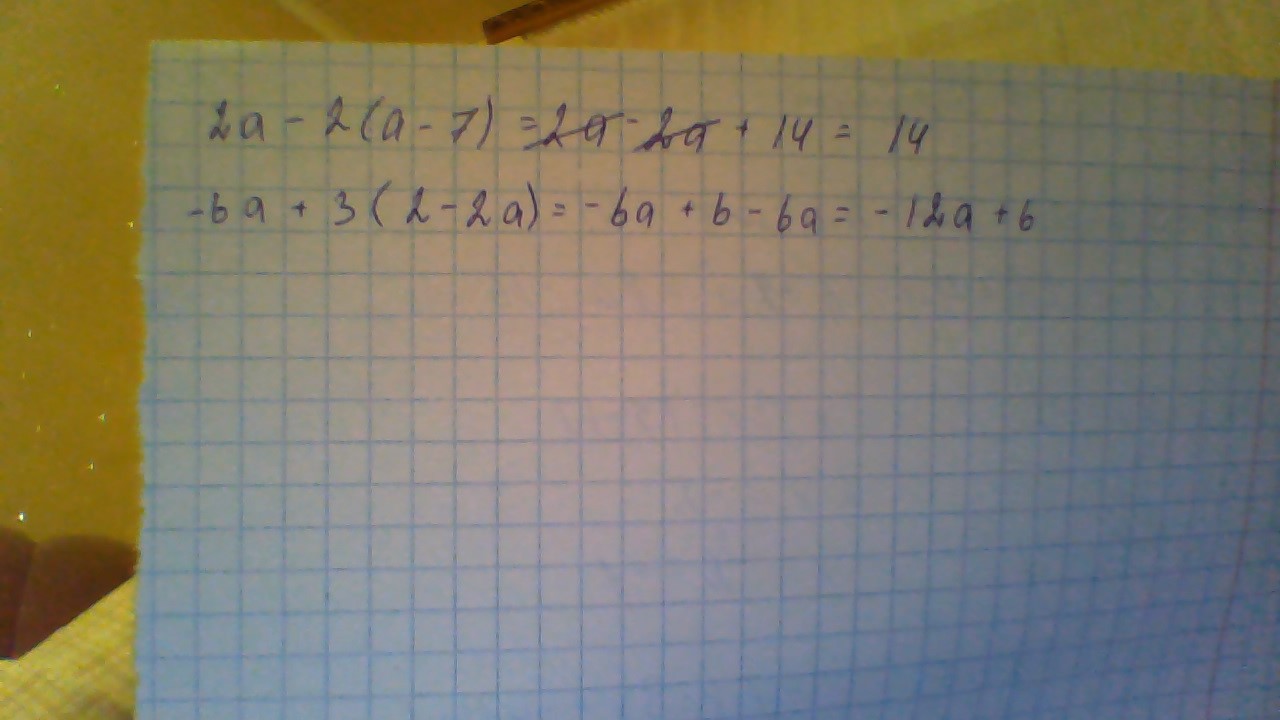 2a - 2(a - 7) = 2a - 2a + 14 = 14
-6a + 3(2 - 2a) = -6a + 6 - 6a = -12a + 6